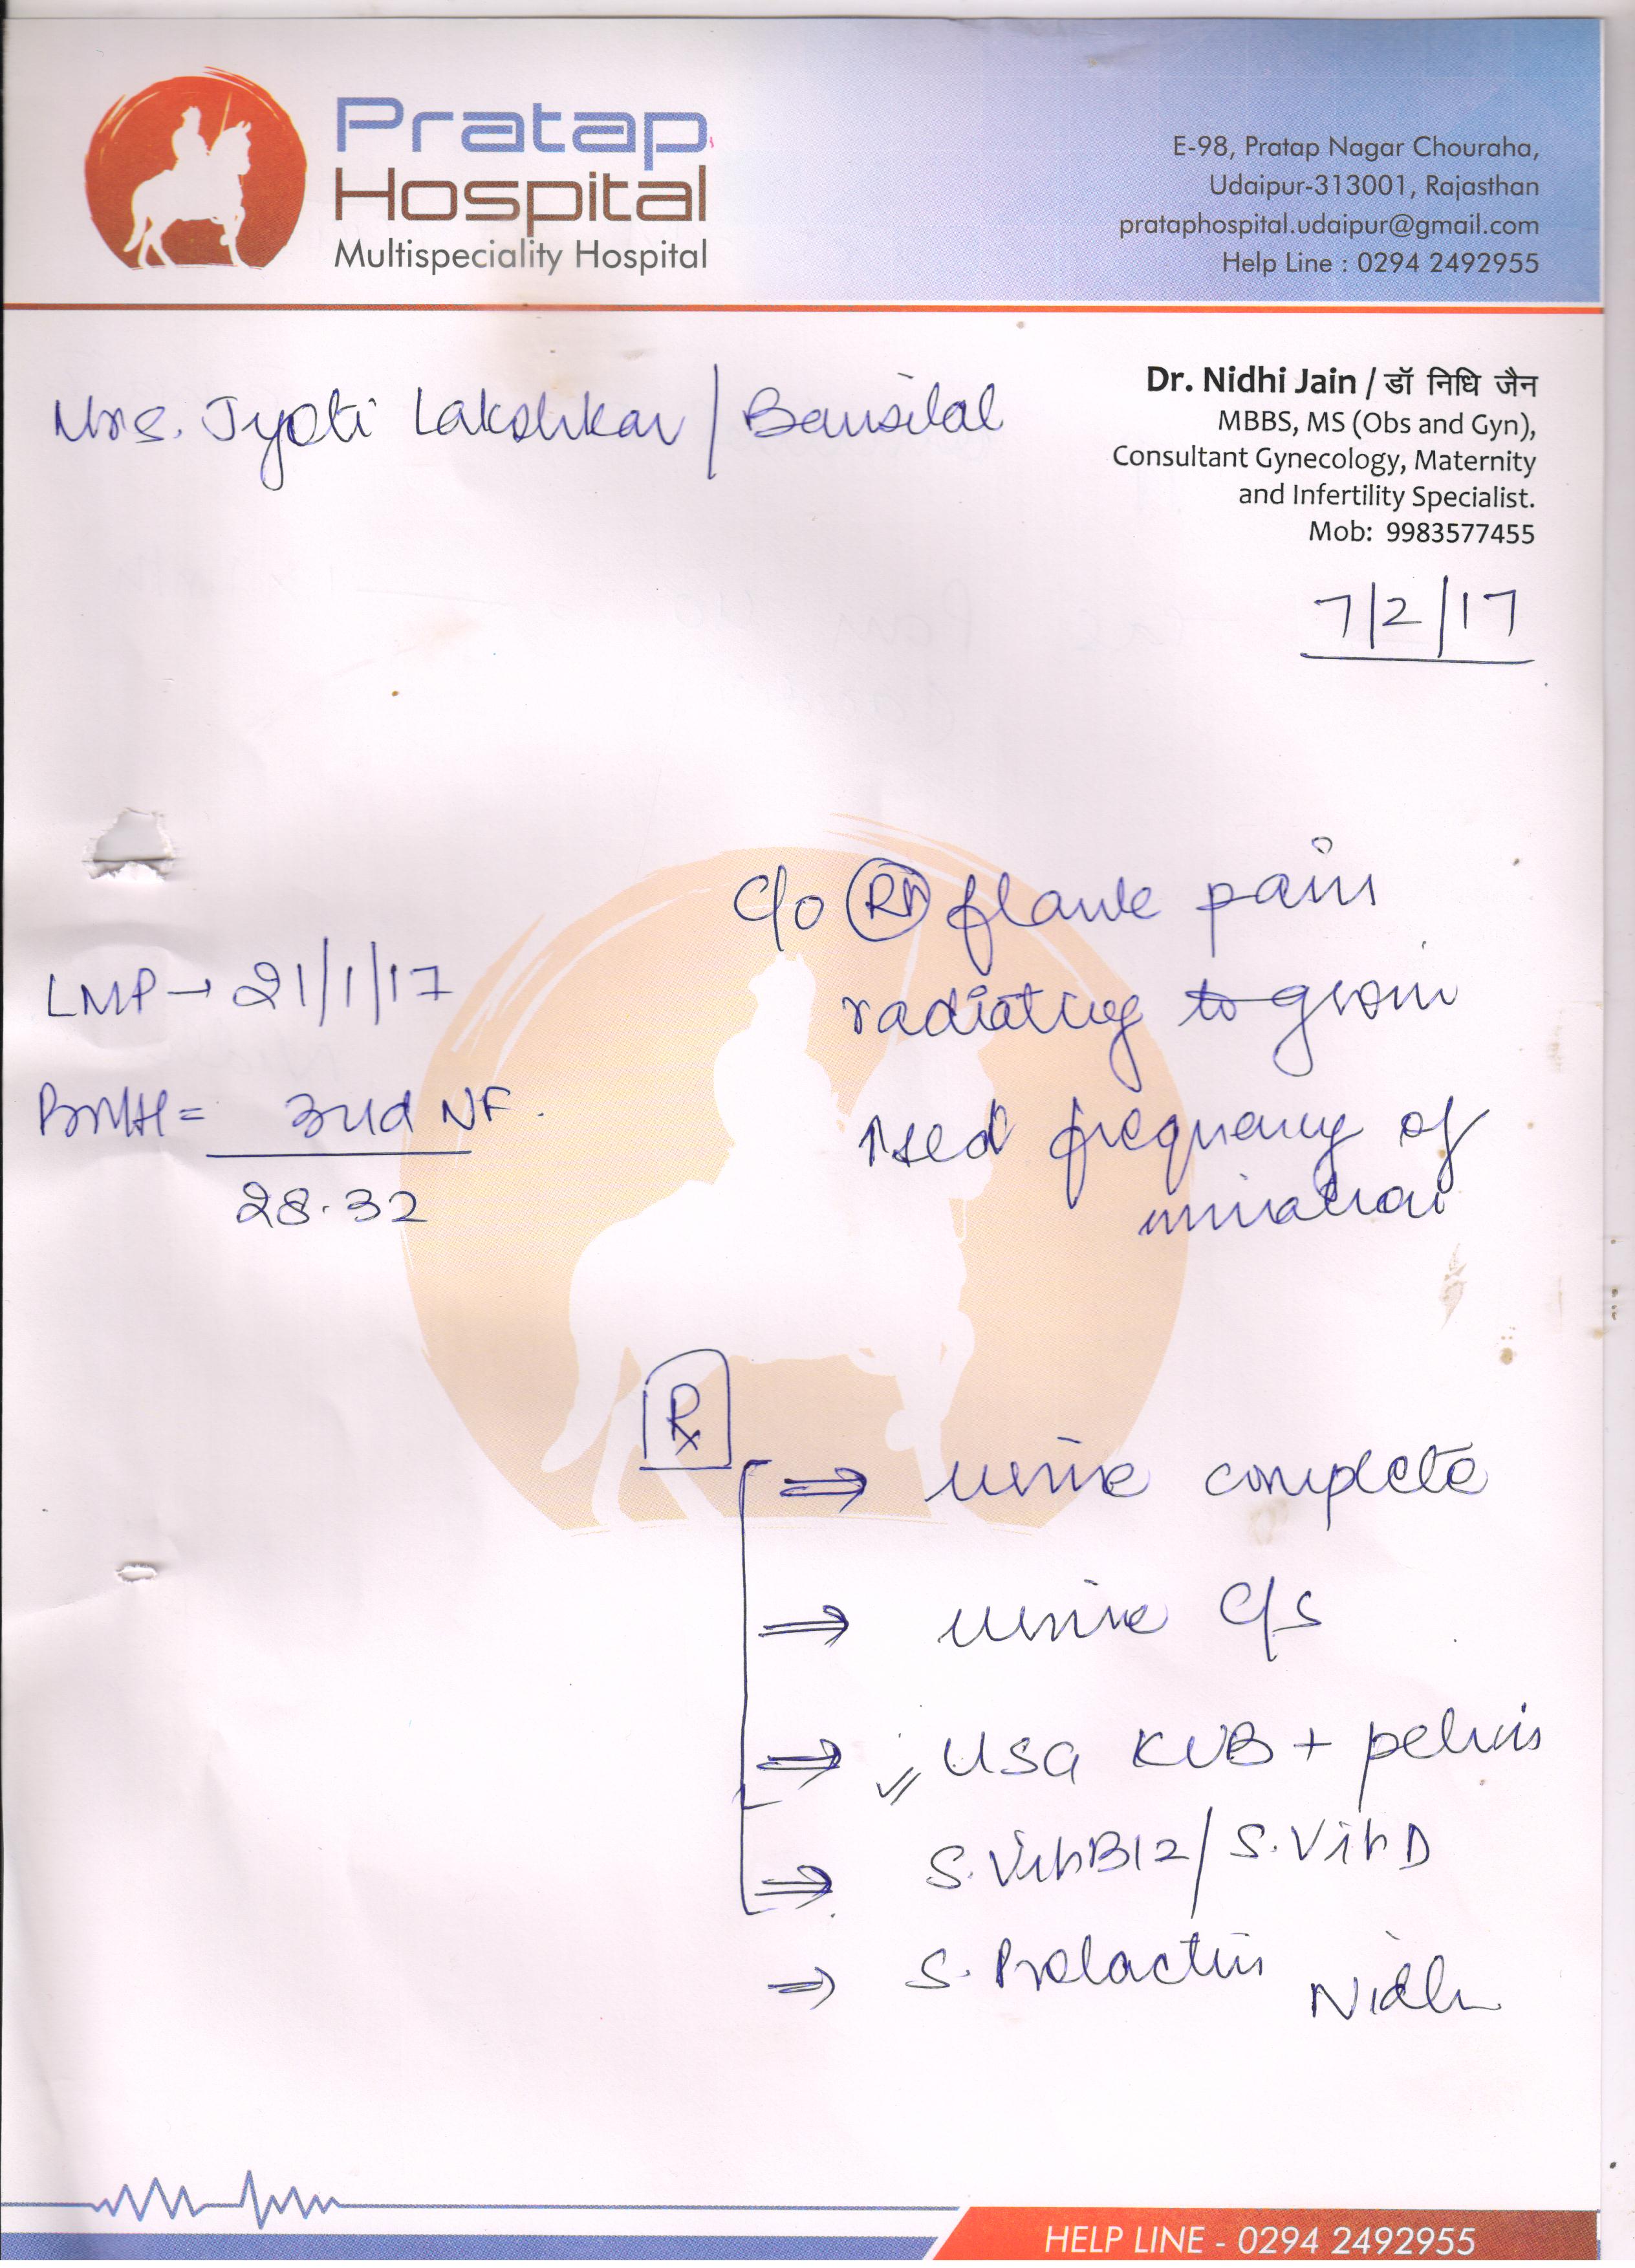 Pratap
Hospital
Multispeciality Hospital
E-98, Pratap Nagar Chouraha,
Udaipur-313001, Rajasthan
prataphospital.udaipur@gmail.com
Help Line : 0294 2492955
Dr. Nidhi Jain / डॉ निधि जैन
MBBS, MS (Obs and Gyn),
Consultant Gynecology, Maternity
and Infertility Specialist.
Mob: 9983577455
Mrs. Jyoti Lakshkar / Bansilal
7/2/17
c/o Rt flank pain
radiating to groin
↑sed frequency of
urination
LMP → 21/1/17
3-4d NF.
28-32
Rx
⇒ urine complete
⇒ urine C/S
⇒ USG KUB + pelvis
⇒ S. Vit B12 / S. Vit D
⇒ S. Prolactin
Nidhi
HELP LINE - 0294 2492955